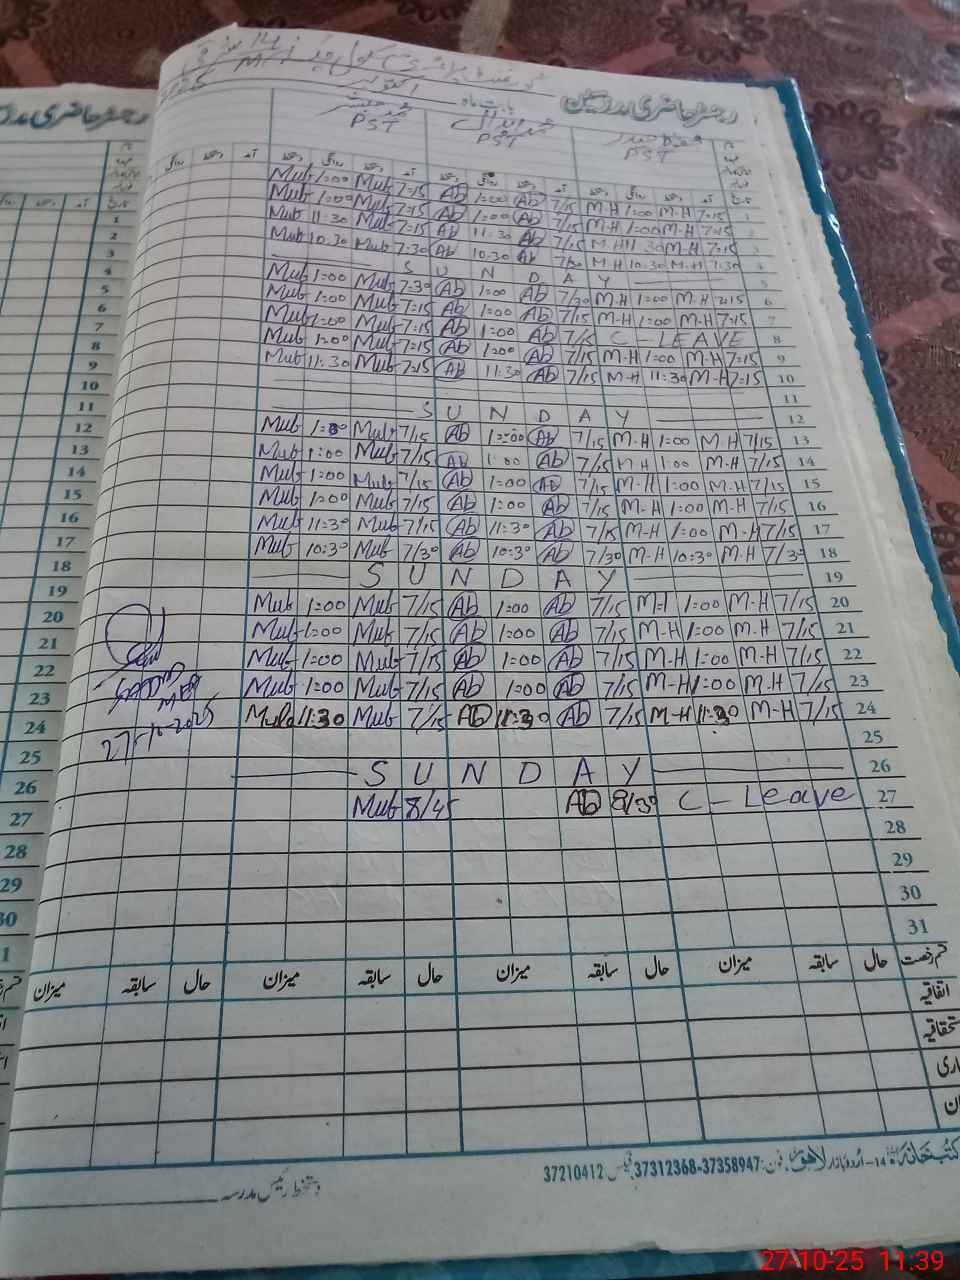 رجسٹر حاضری مدرسین
بابت ماہ اکتوبر
PST PST PST
1 Mub 1=00 Mub 7=15 Ab 1=00 Ab 7/15 M-H 1=00 M-H 7=15
2 Mub 1=00 Mub 7=15 Ab 1=00 Ab 7/15 M-H 1=00 M-H 7=15
3 Mub 11=30 Mub 7=15 Ab 11=30 Ab 7/15 M-H 11=30 M-H 7=15
4 Mub 10=30 Mub 7=30 Ab 10=30 Ab 7/30 M-H 10=30 M-H 7=30
5 S U N D A Y
6 Mub 1=00 Mub 7=30 Ab 1=00 Ab 7/30 M-H 1=00 M-H 7=15
7 Mub 1=00 Mub 7=15 Ab 1=00 Ab 7/15 M-H 1=00 M-H 7=15
8 Mub 1=00 Mub 7=15 Ab 1=00 Ab 7/15 C - LEAVE
9 Mub 1=00 Mub 7=15 Ab 1=00 Ab 7/15 M-H 1=00 M-H 7=15
10 Mub 11=30 Mub 7=15 Ab 11=30 Ab 7/15 M-H 11=30 M-H 7=15
11
12 S U N D A Y
13 Mub 1=00 Mub 7/15 Ab 1=00 Ab 7/15 M-H 1=00 M-H 7/15
14 Mub 1=00 Mub 7/15 Ab 1=00 Ab 7/15 M-H 1=00 M-H 7/15
15 Mub 1=00 Mub 7/15 Ab 1=00 Ab 7/15 M-H 1=00 M-H 7/15
16 Mub 1=00 Mub 7/15 Ab 1=00 Ab 7/15 M-H 1=00 M-H 7/15
17 Mub 11=30 Mub 7/15 Ab 11=30 Ab 7/15 M-H 1=00 M-H 7/15
18 Mub 10=30 Mub 7/30 Ab 10=30 Ab 7/30 M-H 10=30 M-H 7/30
19 S U N D A Y
20 Mub 1=00 Mub 7/15 Ab 1=00 Ab 7/15 M-H 1=00 M-H 7/15
21 Mub 1=00 Mub 7/15 Ab 1=00 Ab 7/15 M-H 1=00 M-H 7/15
22 Mub 1=00 Mub 7/15 Ab 1=00 Ab 7/15 M-H 1=00 M-H 7/15
23 Mub 1=00 Mub 7/15 Ab 1=00 Ab 7/15 M-H 1=00 M-H 7/15
24 Mub 11=30 Mub 7/15 Ab 11=30 Ab 7/15 M-H 11=30 M-H 7/15
27-10-2025
25
26 S U N D A Y
27 Mub 8/45 Ab 8/30 C - Leave
28
29
30
31
قسم رخصت حال سابقہ میزان حال سابقہ میزان حال سابقہ میزان
اتفاقیہ
استحقاقیہ
37210412 فیکس 37312368-37358947 فون: 14-اردو بازار لاہور
دستخط رئیس مدرسہ
27-10-25 11:39